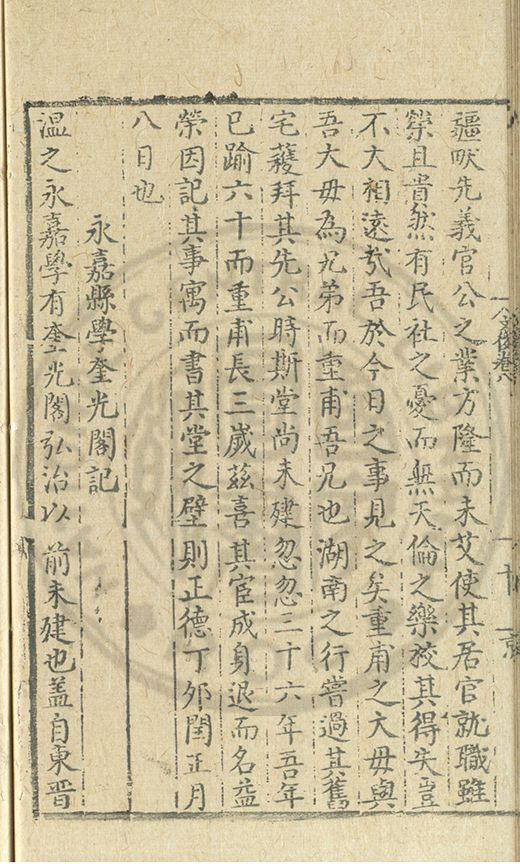 疆畎先義官公之業方隆而未艾使其居官就職雖
榮且貴然有民社之憂而無天倫之樂校其得失豈
不大相遠㢤吾於今日之事見之矣重甫之大毋與
吾大毋為兄弟而重甫吾兄也湖南之行嘗過其舊
宅䕶拜其先公時斯堂尚未建忽忽二十六年吾年
已踰六十而重甫長三歲茲喜其宦成身退而名益
榮因記其事寓而書其堂之壁則正德丁夘閏正月
八日也
永嘉縣學奎光閣記
温之永嘉學有奎光閣弘治以前未建也盖自東晋